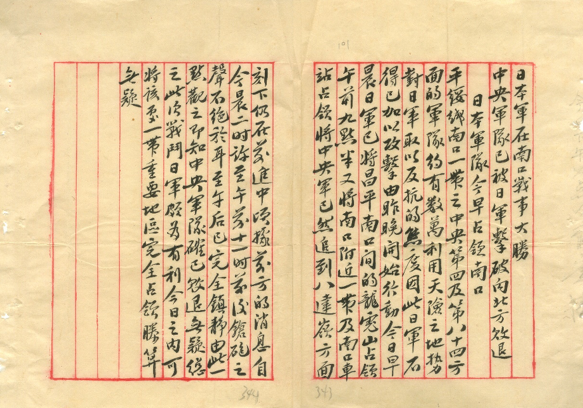 日本軍在南口戰事大勝
中央軍隊已被日軍擊破向北方敗退
日本軍隊今早占領南口
平綏綫南口一帶之中央第四及第八十四方
面的軍隊約有數萬利用天險之地勢
對日軍取以反抗的態度因此日軍不
得已加以攻擊由昨晚開始行動今日早
晨日軍已將昌平南口間的龍虎山占領
午前九點半又將南口附近一帶及南口車
站占領將中央軍已然追到八達嶺方面
刻下仍在前進中時據前方的消息自
今晨二時許至午前十一時前後鎗砲之
聲不絕於耳至午后已完全鎮靜由此一
點觀之即知中央軍隊確已敗退無疑總
之此次戰鬥日軍頗為有利今日之內可
將該處一帶重要地區完全占領勝算
無疑
344
343